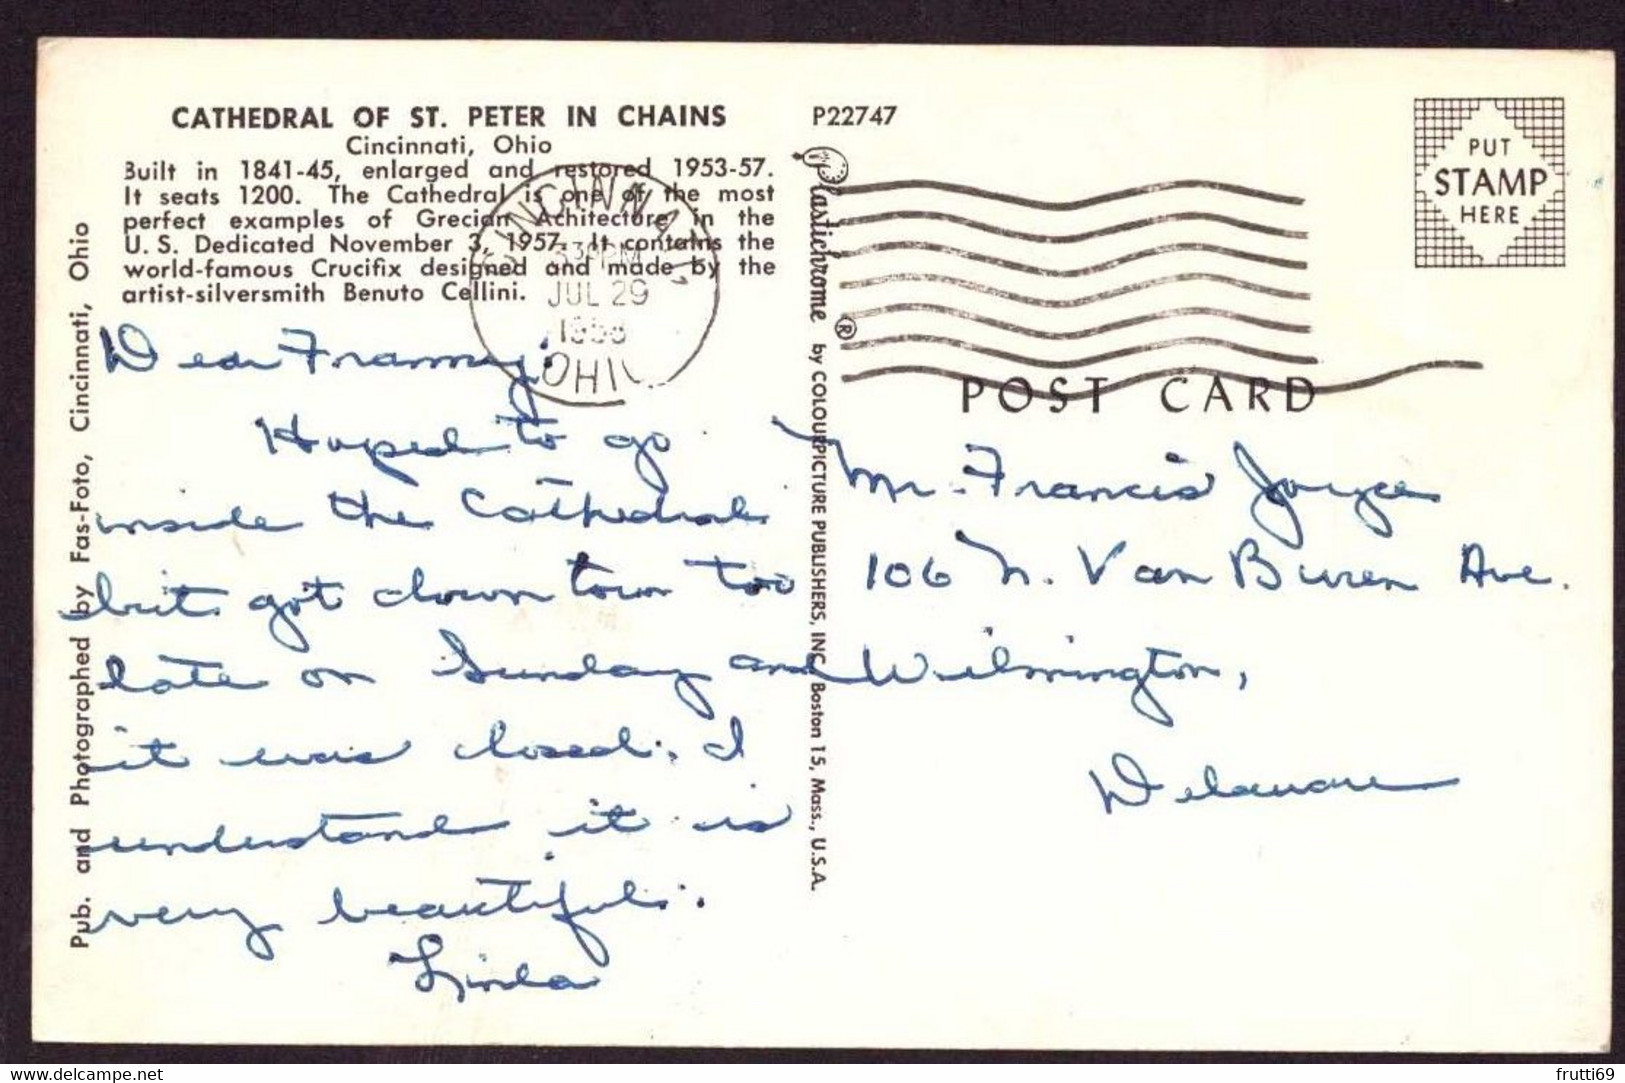 CATHEDRAL OF ST. PETER IN CHAINS
Cincinnati, Ohio
Built in 1841-45, enlarged and restored 1953-57.
It seats 1200. The Cathedral is one of the most
perfect examples of Grecian Achitecture in the
U.S. Dedicated November 3, 1957. It contains the
world-famous Crucifix designed and made by the
artist-silversmith Benuto Cellini.
Pub. and Photographed by Fas-Foto, Cincinnati, Ohio
CINCINNATI,
PM
JUL 29
OHIO
Dear Franny:
Hoped to go
inside the Cathedral
but got down town too
late on Sunday and
it was closed. I
understand it is
very beautiful.
Linda
P22747
Plastichrome ® by COLOURPICTURE PUBLISHERS, INC. Boston 15, Mass., U.S.A.
PUT
STAMP
HERE
POST CARD
Mr. Francis Joyce
106 N. Van Buren Ave.
Wilmington,
Delaware
delcampe.net
frutti69